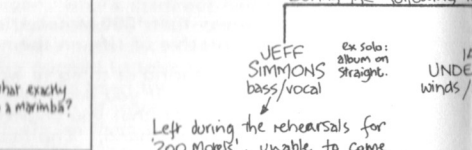 what exactly
a marimba?
JEFF
SIMMONS
bass/vocal
ex solo:
album on
Straight.
UNDE
winds/
Left during the rehearsals for
'200 Motels', unable to come